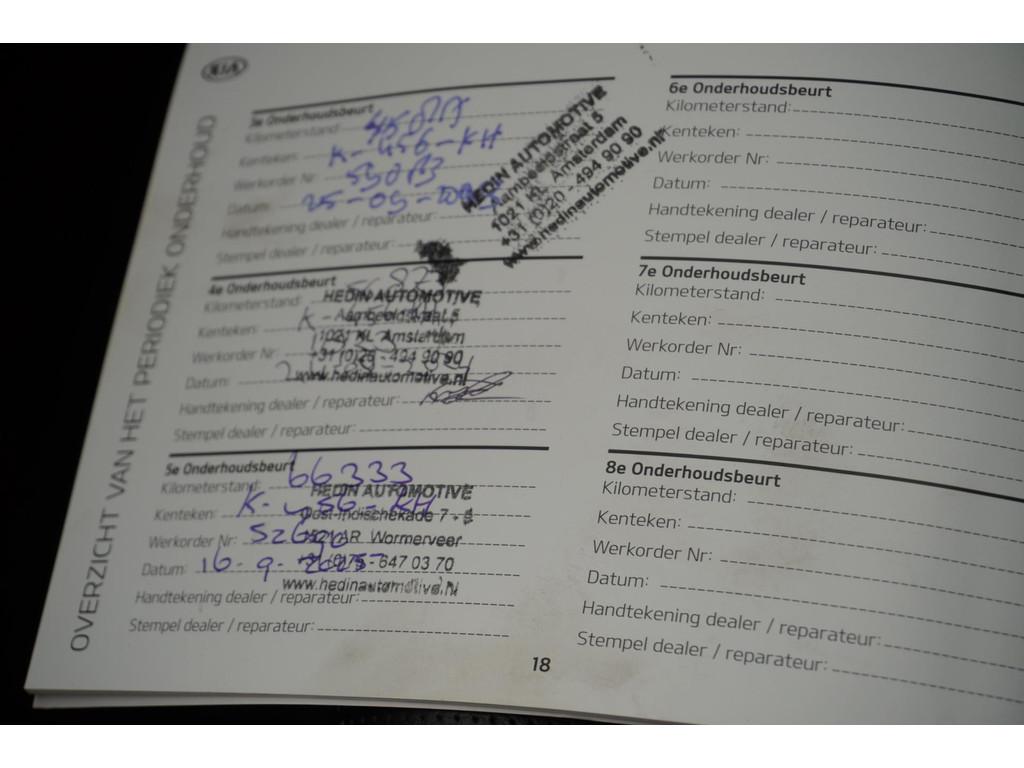 KIA
OVERZICHT VAN HET PERIODIEK ONDERHOUD
3e Onderhoudsbeurt
Kilometerstand:
Kenteken: K-456-KH
Werkorder Nr:
Datum: 25-09-
Handtekening dealer / reparateur:
Stempel dealer / reparateur:
HEDIN AUTOMOTIVE
Aambeeldstraat 5
1021 KL Amsterdam
+31 (0)20 - 494 90 90
www.hedinautomotive.nl
4e Onderhoudsbeurt
Kilometerstand:
Kenteken: K-
Werkorder Nr:
Datum:
Handtekening dealer / reparateur:
Stempel dealer / reparateur:
HEDIN AUTOMOTIVE
Aambeeldstraat 5
1021 KL Amsterdam
+31 (0)20 - 494 90 90
www.hedinautomotive.nl
5e Onderhoudsbeurt
Kilometerstand: 66333
Kenteken: K-456-KH
Werkorder Nr:
Datum: 16-9-2025
Handtekening dealer / reparateur:
Stempel dealer / reparateur:
HEDIN AUTOMOTIVE
Oost-Indischekade 7 - 9
1521 AR Wormerveer
+31 (0)75 - 647 03 70
www.hedinautomotive.nl
18
6e Onderhoudsbeurt
Kilometerstand:
Kenteken:
Werkorder Nr:
Datum:
Handtekening dealer / reparateur:
Stempel dealer / reparateur:
7e Onderhoudsbeurt
Kilometerstand:
Kenteken:
Werkorder Nr:
Datum:
Handtekening dealer / reparateur:
Stempel dealer / reparateur:
8e Onderhoudsbeurt
Kilometerstand:
Kenteken:
Werkorder Nr:
Datum:
Handtekening dealer / reparateur:
Stempel dealer / reparateur: